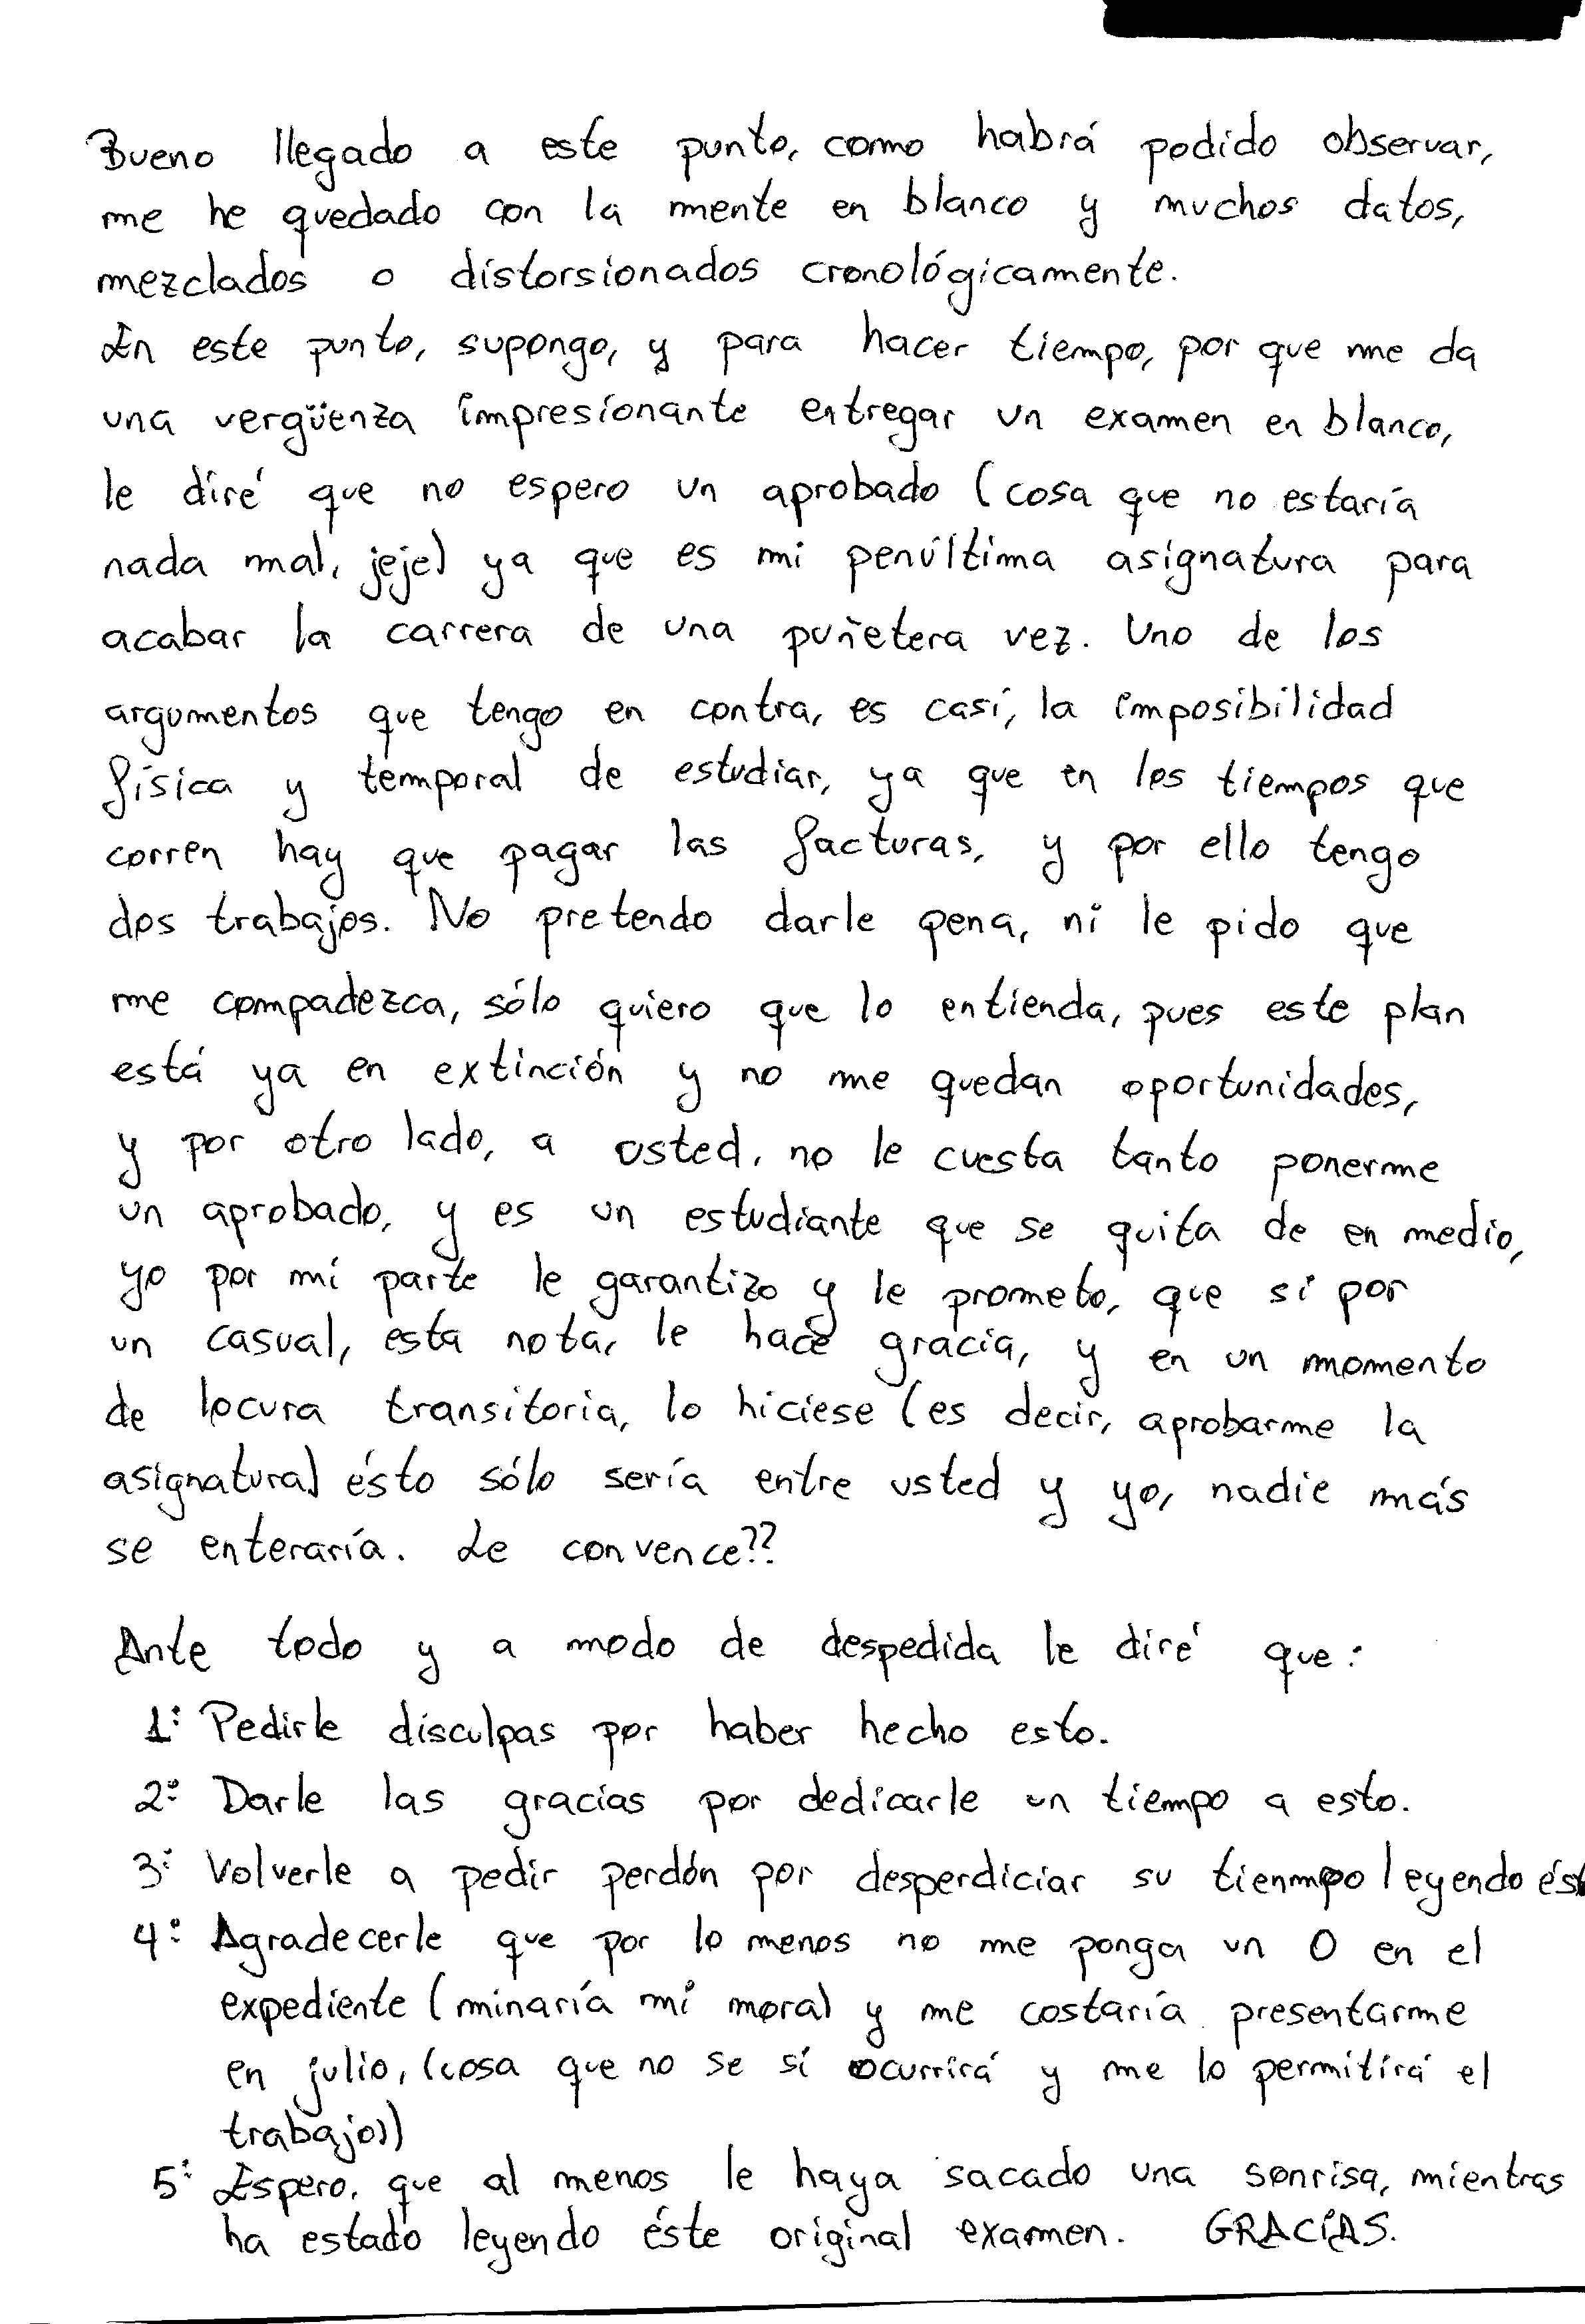 Bueno llegado a este punto, como habrá podido observar,
me he quedado con la mente en blanco y muchos datos,
mezclados o distorsionados cronológicamente.
En este punto, supongo, y para hacer tiempo, por que me da
una vergüenza impresionante entregar un examen en blanco,
le diré que no espero un aprobado (cosa que no estaría
nada mal, jeje) ya que es mi penúltima asignatura para
acabar la carrera de una puñetera vez. Uno de los
argumentos que tengo en contra, es casi, la imposibilidad
física y temporal de estudiar, ya que en los tiempos que
corren hay que pagar las facturas, y por ello tengo
dos trabajos. No pretendo darle pena, ni le pido que
me compadezca, sólo quiero que lo entienda, pues este plan
está ya en extinción y no me quedan oportunidades,
y por otro lado, a usted, no le cuesta tanto ponerme
un aprobado, y es un estudiante que se quita de en medio,
yo por mi parte le garantizo y le prometo, que si por
un casual, esta nota, le hace gracia, y en un momento
de locura transitoria, lo hiciese (es decir, aprobarme la
asignatura) ésto sólo sería entre usted y yo, nadie más
se enteraría. Le convence??
Ante todo y a modo de despedida le diré que:
1º Pedirle disculpas por haber hecho esto.
2º Darle las gracias por dedicarle un tiempo a esto.
3º Volverle a pedir perdón por desperdiciar su tienmpo leyendo ést
4º Agradecerle que por lo menos no me ponga un 0 en el
expediente (minaría mi moral y me costaría presentarme
en julio, (cosa que no se si ocurrirá y me lo permitirá el
trabajo))
5º Espero, que al menos le haya sacado una sonrisa, mientras
ha estado leyendo éste original examen. GRACIAS.